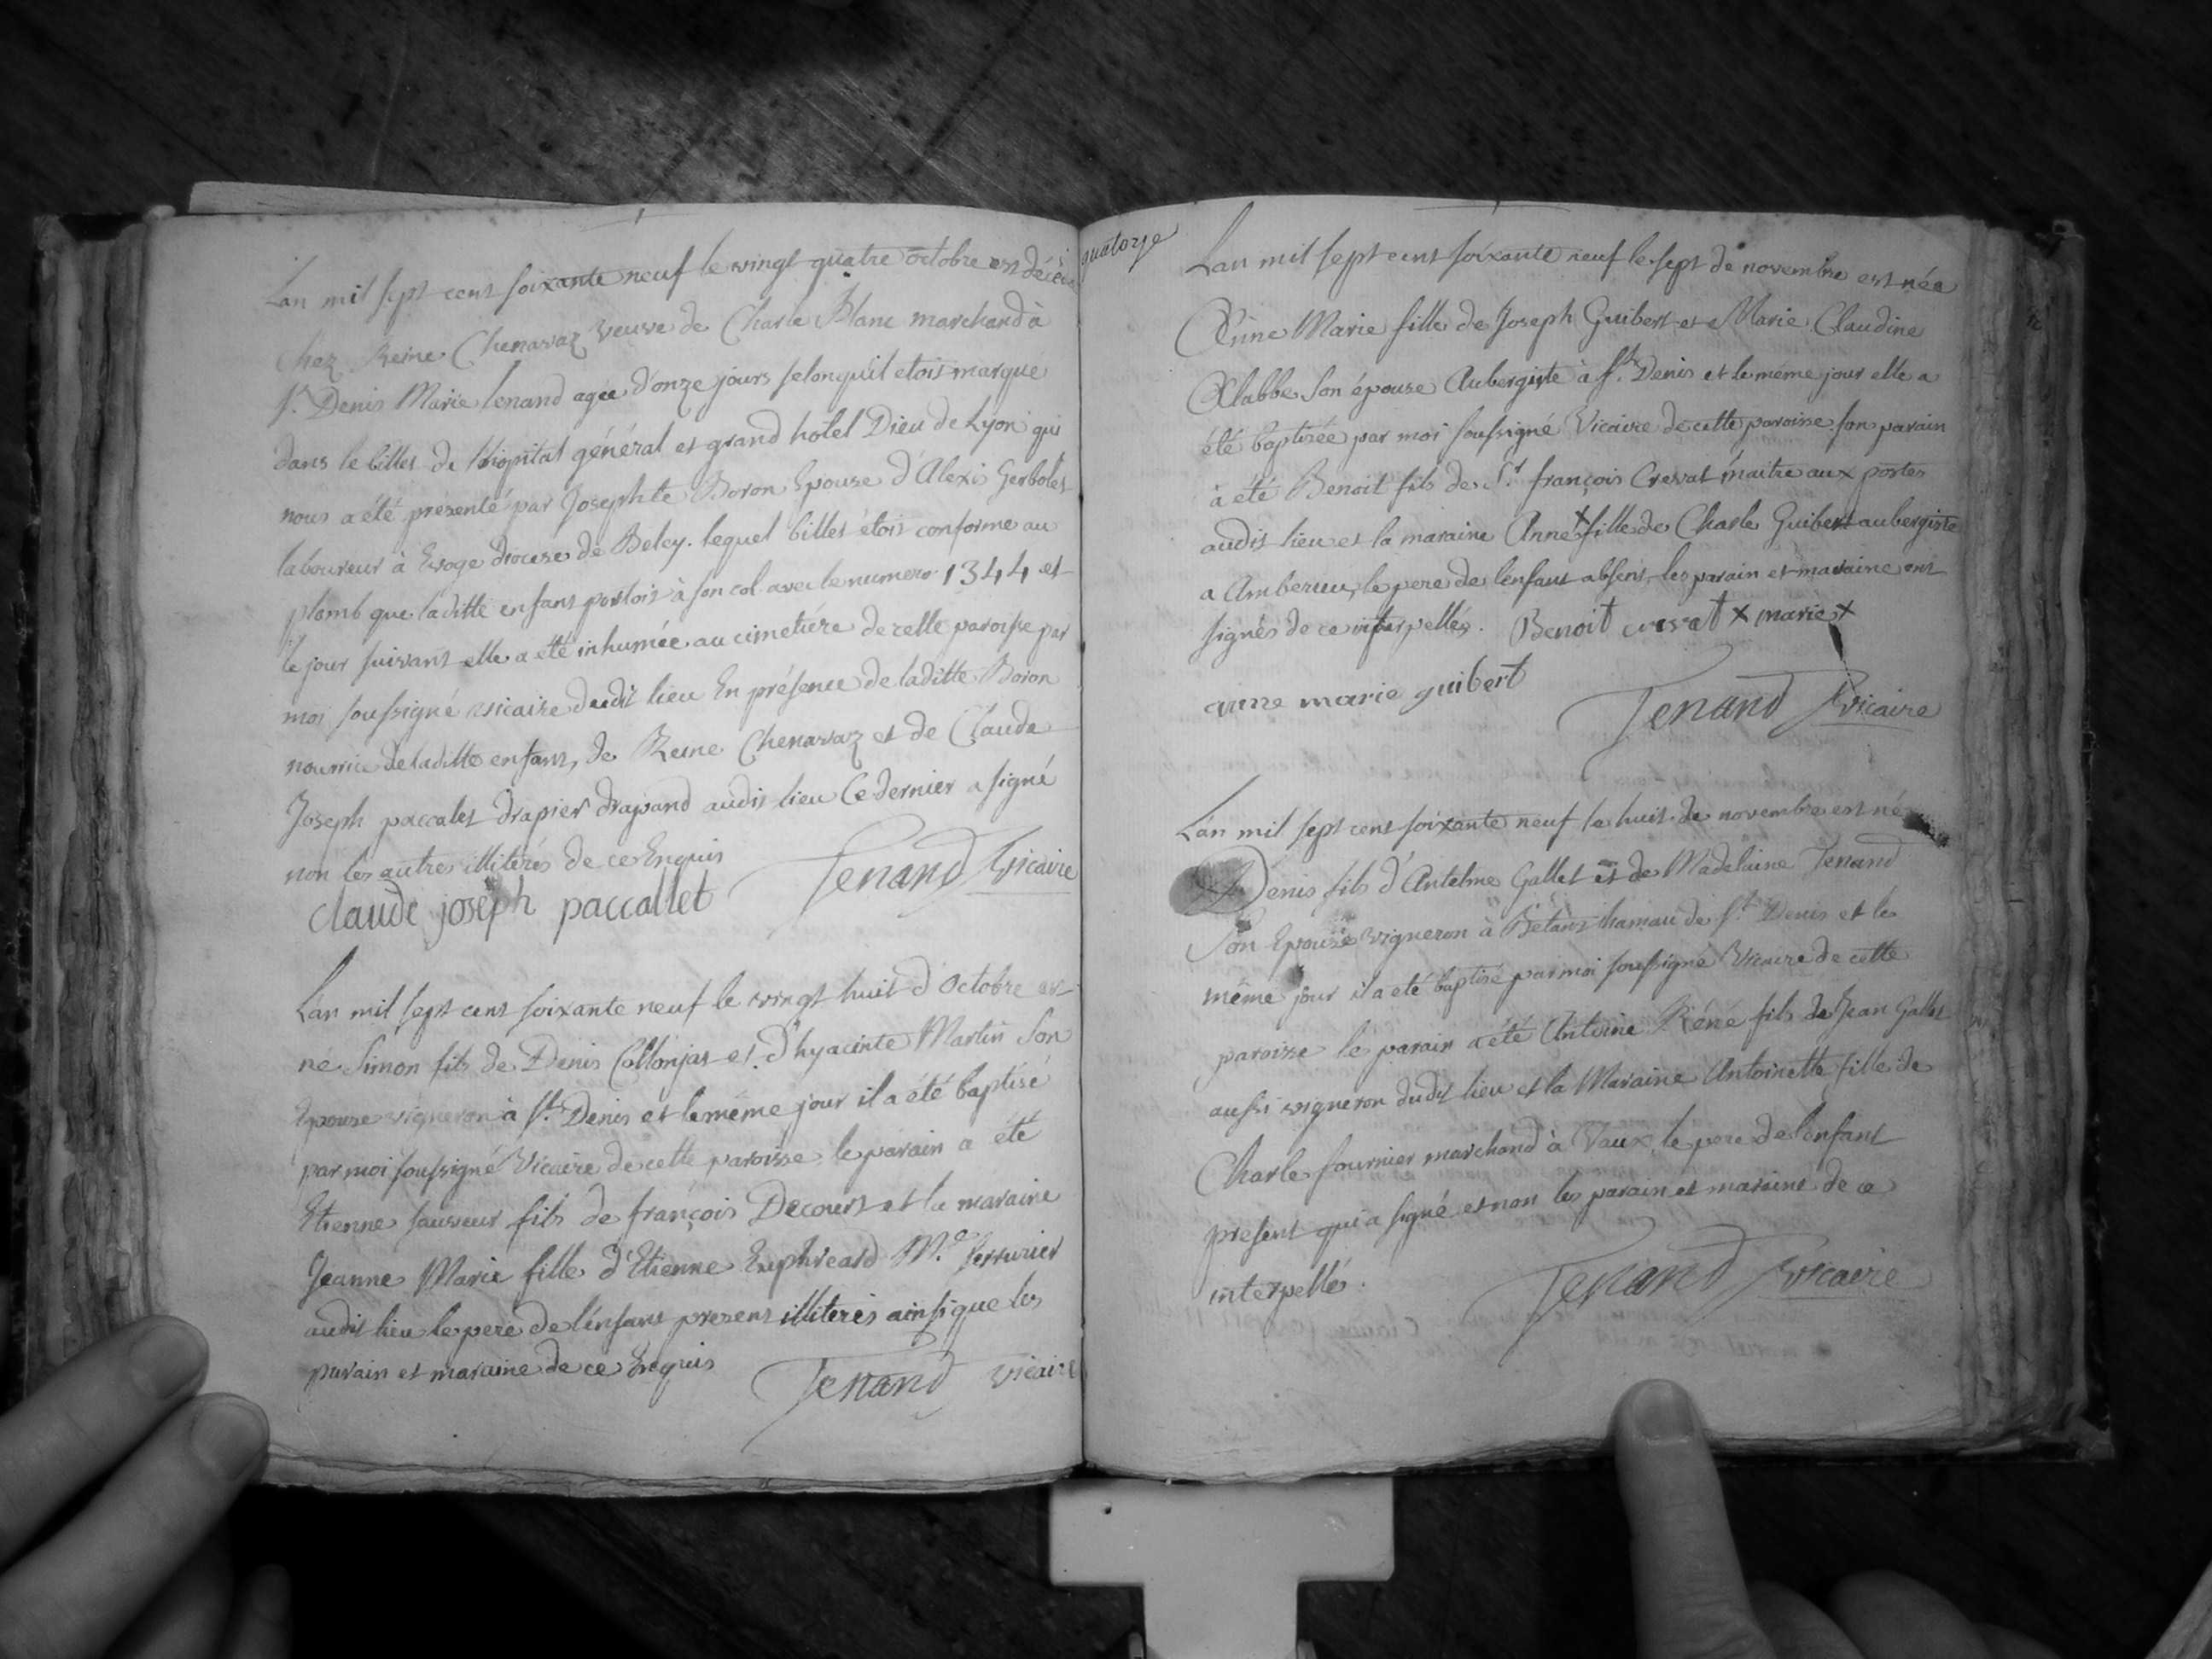 Lan mil sept cent soixante neuf le vingt quatre octobre est décédé
chez Reine Chenavaz veuve de Charle Blanc marchand à
st. Denis Marie Tenand agee d'onze jours selonqu'il etoit marqué
dans le billet de l'hopital général et grand hotel Dieu de Lyon qui
nous a été présenté par Josephte Boron Epouse d'Alexis Gerbolet
laboureur à Evoge diocese de Beley. lequel billet étoit conforme au
plomb que laditte enfant portoit à son col avec le numero 1344 et
le jour suivant elle a été inhumée au cimetiére de cette paroisse par
moi soussigné vicaire dudit lieu En présence de laditte Boron
nourrice de laditte enfant, de Reine Chenavaz et de Claude
Joseph paccalet drapier drapand audit lieu Ce dernier a signé
non les autres illiterés de ce Enquis
Tenand vicaire
claude joseph paccallet
Lan mil sept cent soixante neuf le vingt huit d'octobre est
né Simon fils de Denis Collonjat et d'hyacinte Martin Son
Epouse vigneron à st. Denis et le même jour il a été baptisé
par moi soussigné Vicaire de cette paroisse le parain a été
Etienne sauveur fils de françois Decourt et la maraine
Jeanne Marie fille d'Etienne Euphreard Me. serrurier
audit lieu le pere de l'enfant present illiterés ainsi que les
parain et maraine de ce Enquis
Tenand vicaire
quatorze
Lan mil sept cent soixante neuf le sept de novembre est née
Anne Marie fille de Joseph Guibert et Marie Claudine
Alabbe Son épouse Aubergiste à st. Denis et le même jour elle a
été baptisée par moi soussigné Vicaire de cette paroisse son parain
à été Benoit fils de Sr. françois Crevat maitre aux postes
audit lieu et la maraine Anne x fille de Charle Guibert aubergiste
a Amberieu, le pere de l'enfant absent, les parain et maraine ont
signés de ce interpellés. Benoit crevat x marie x
anne marie guibert
Tenand vicaire
Lan mil sept cent soixante neuf le huit de novembre est né
Denis fils d'Antelme Gallet et de Madelaine Tenand
Son Epouse vigneron à Bétant hamau de st. Denis et le
même jour il a été baptisé par moi soussigné Vicaire de cette
paroisse le parain a été Antoine Réné fils de Jean Gallet
aussi vigneron dudit lieu et la Maraine Antoinette fille de
Charle fournier marchand à Vaux, le pere de l'enfant
present qui a signé et non les parain et maraine de ce
interpellé.
Tenand vicaire